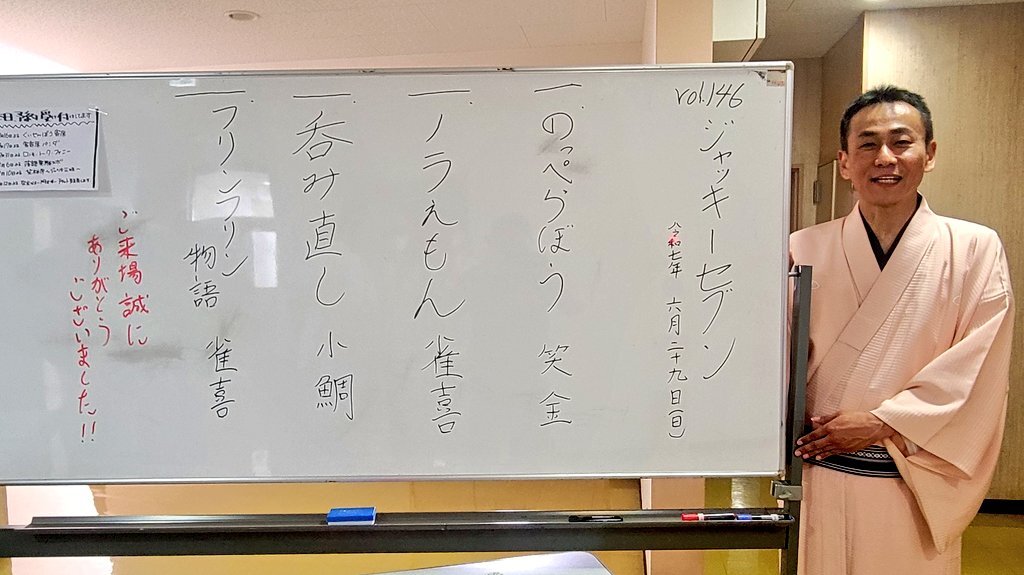 vol.146
ジャッキーセブン
令和七年 六月二十九日(日)
一、のっぺらぼう 笑金
一、ノラえもん 雀喜
一、呑み直し 小鯛
一、フリンラリン物語 雀喜
ご来場誠に
ありがとう
ございました!!